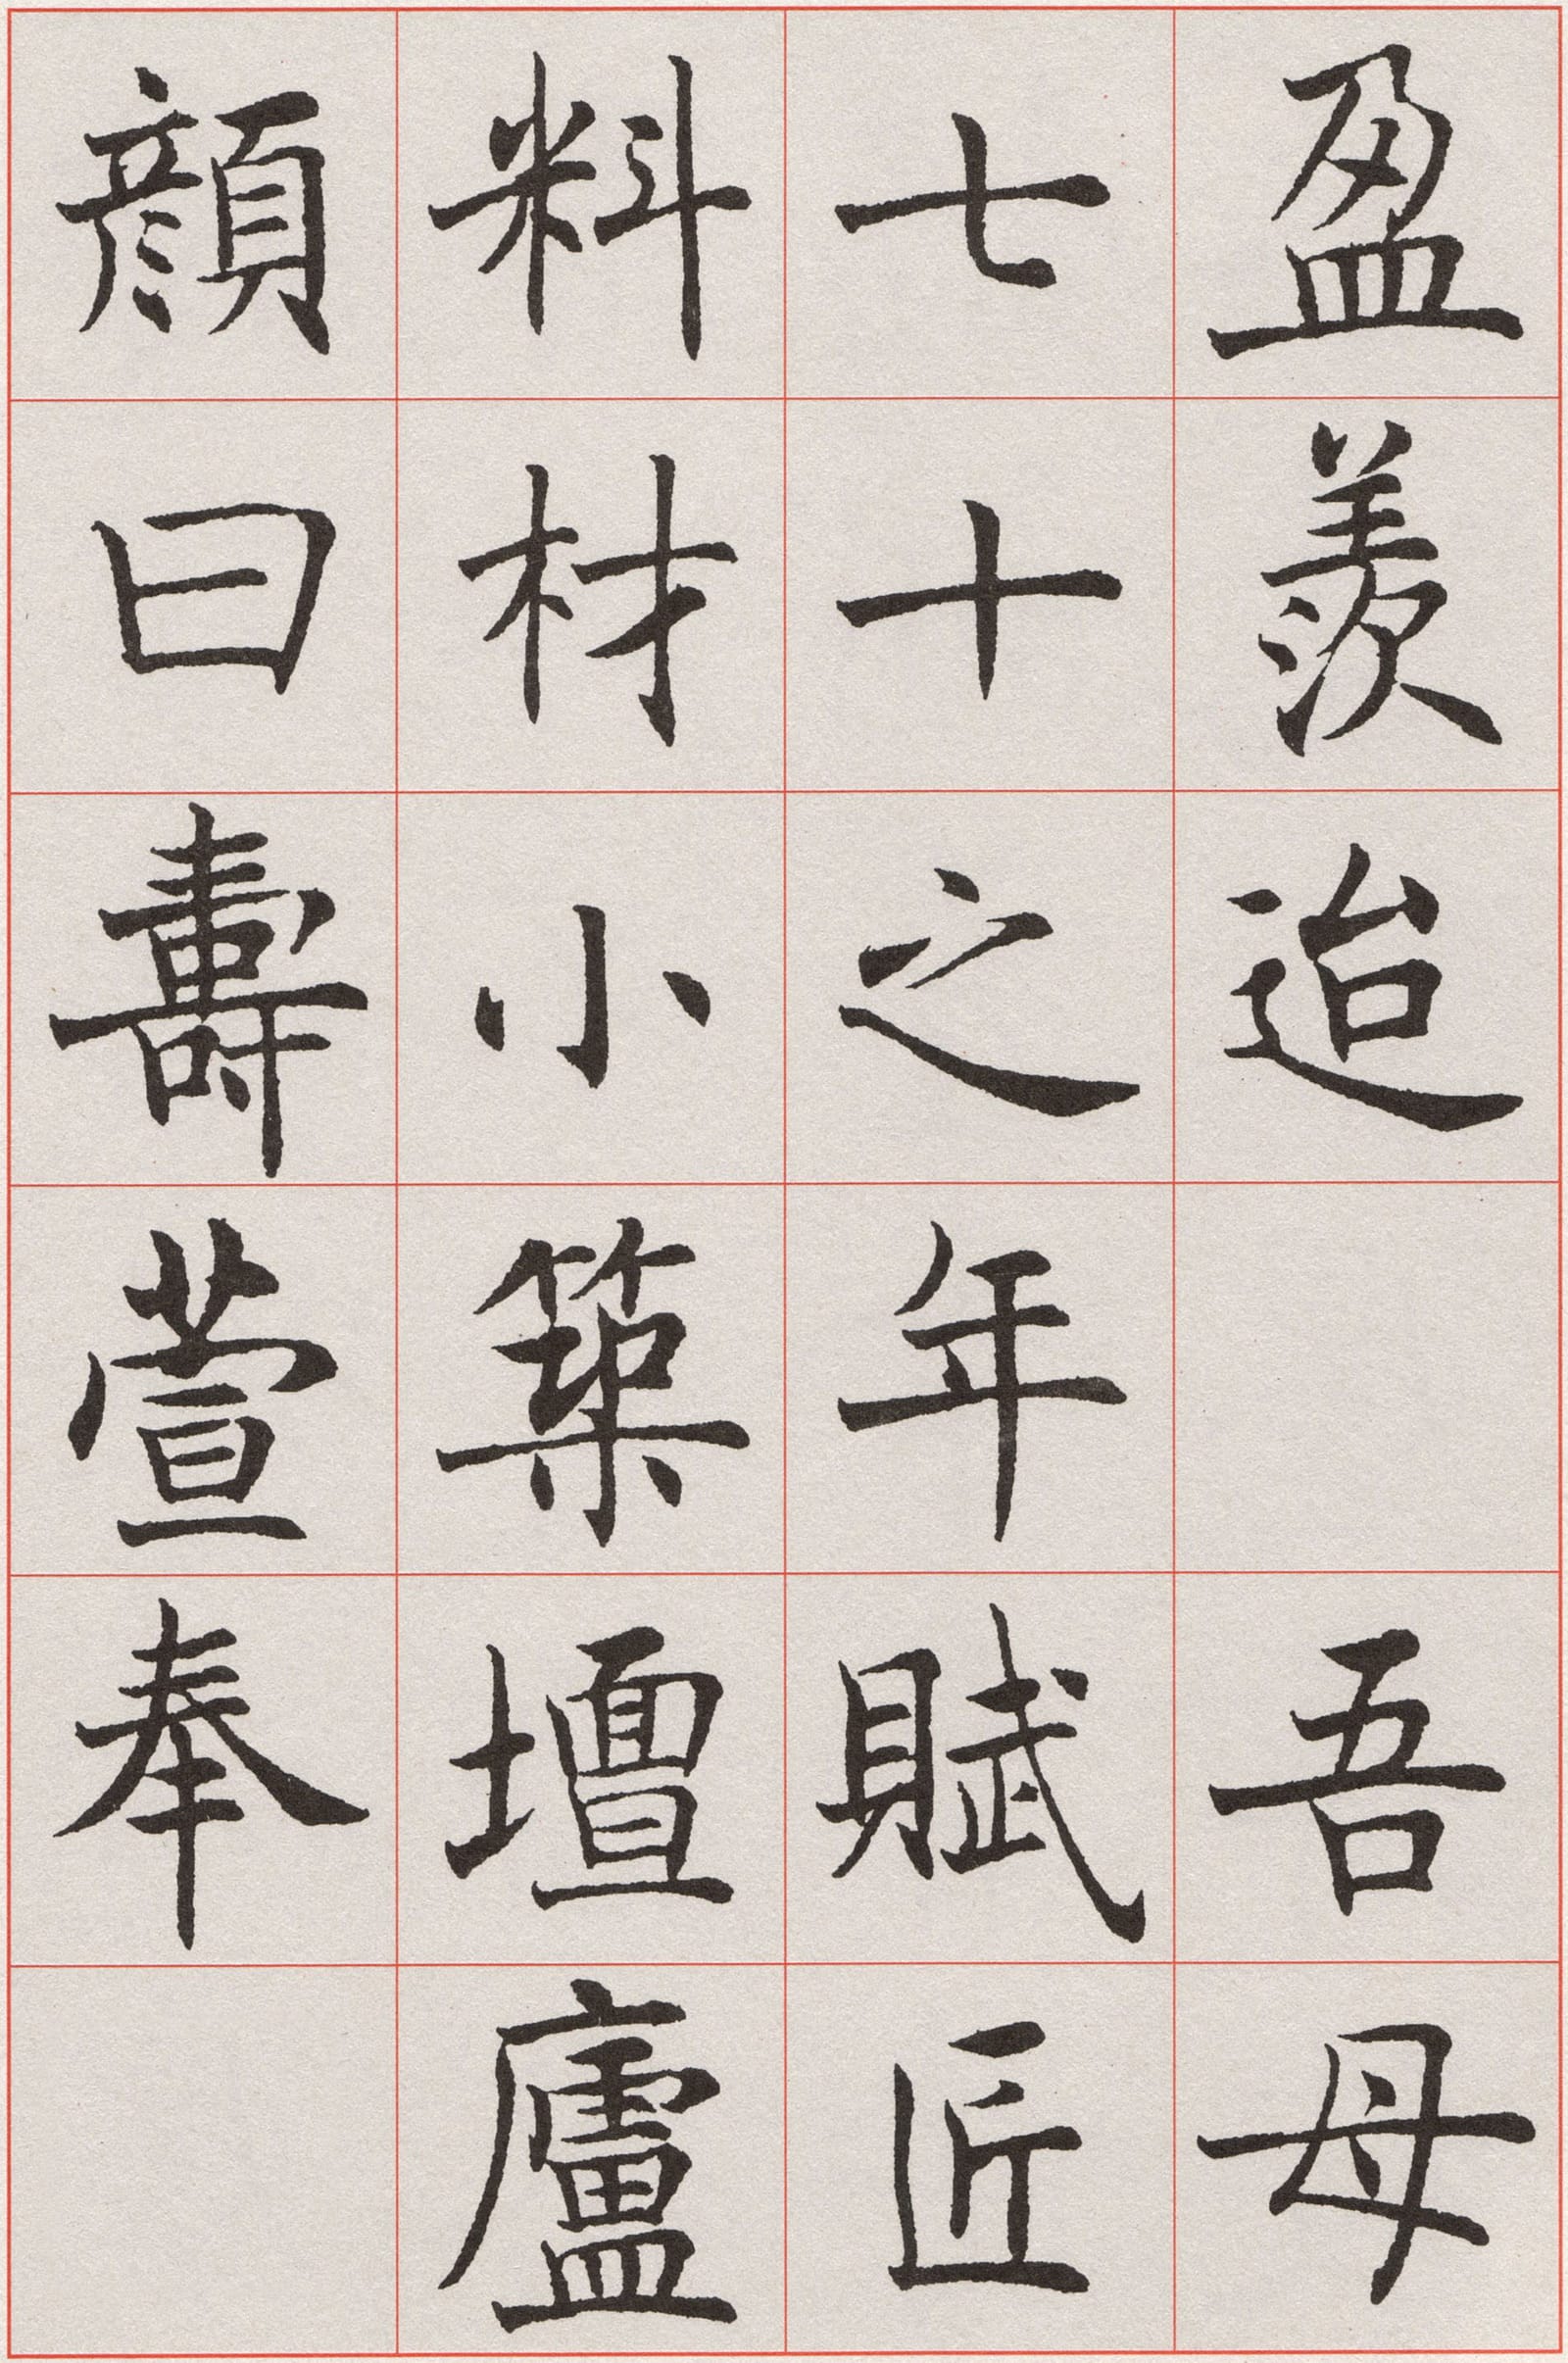 盈羨迨 吾母
七十之年賦匠
料材小築壇廬
顏曰壽萱奉